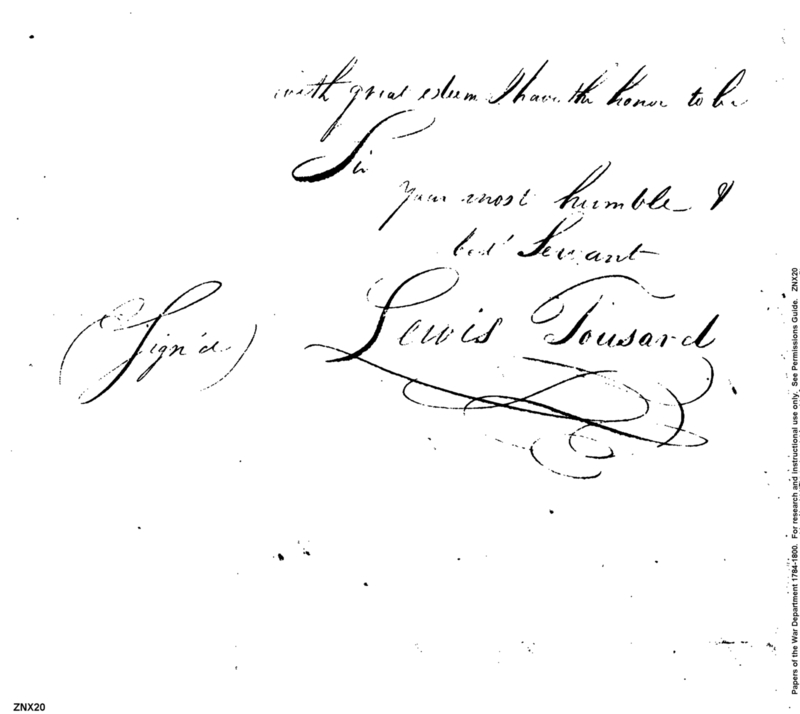 with great esteem I have the honor to be
Sir
your most humble &
bed.t Servant
(Sign'd) Lewis Tousard
Papers of the War Department 1784-1800. For research and instructional use only. See Permissions Guide. ZNX20
ZNX20